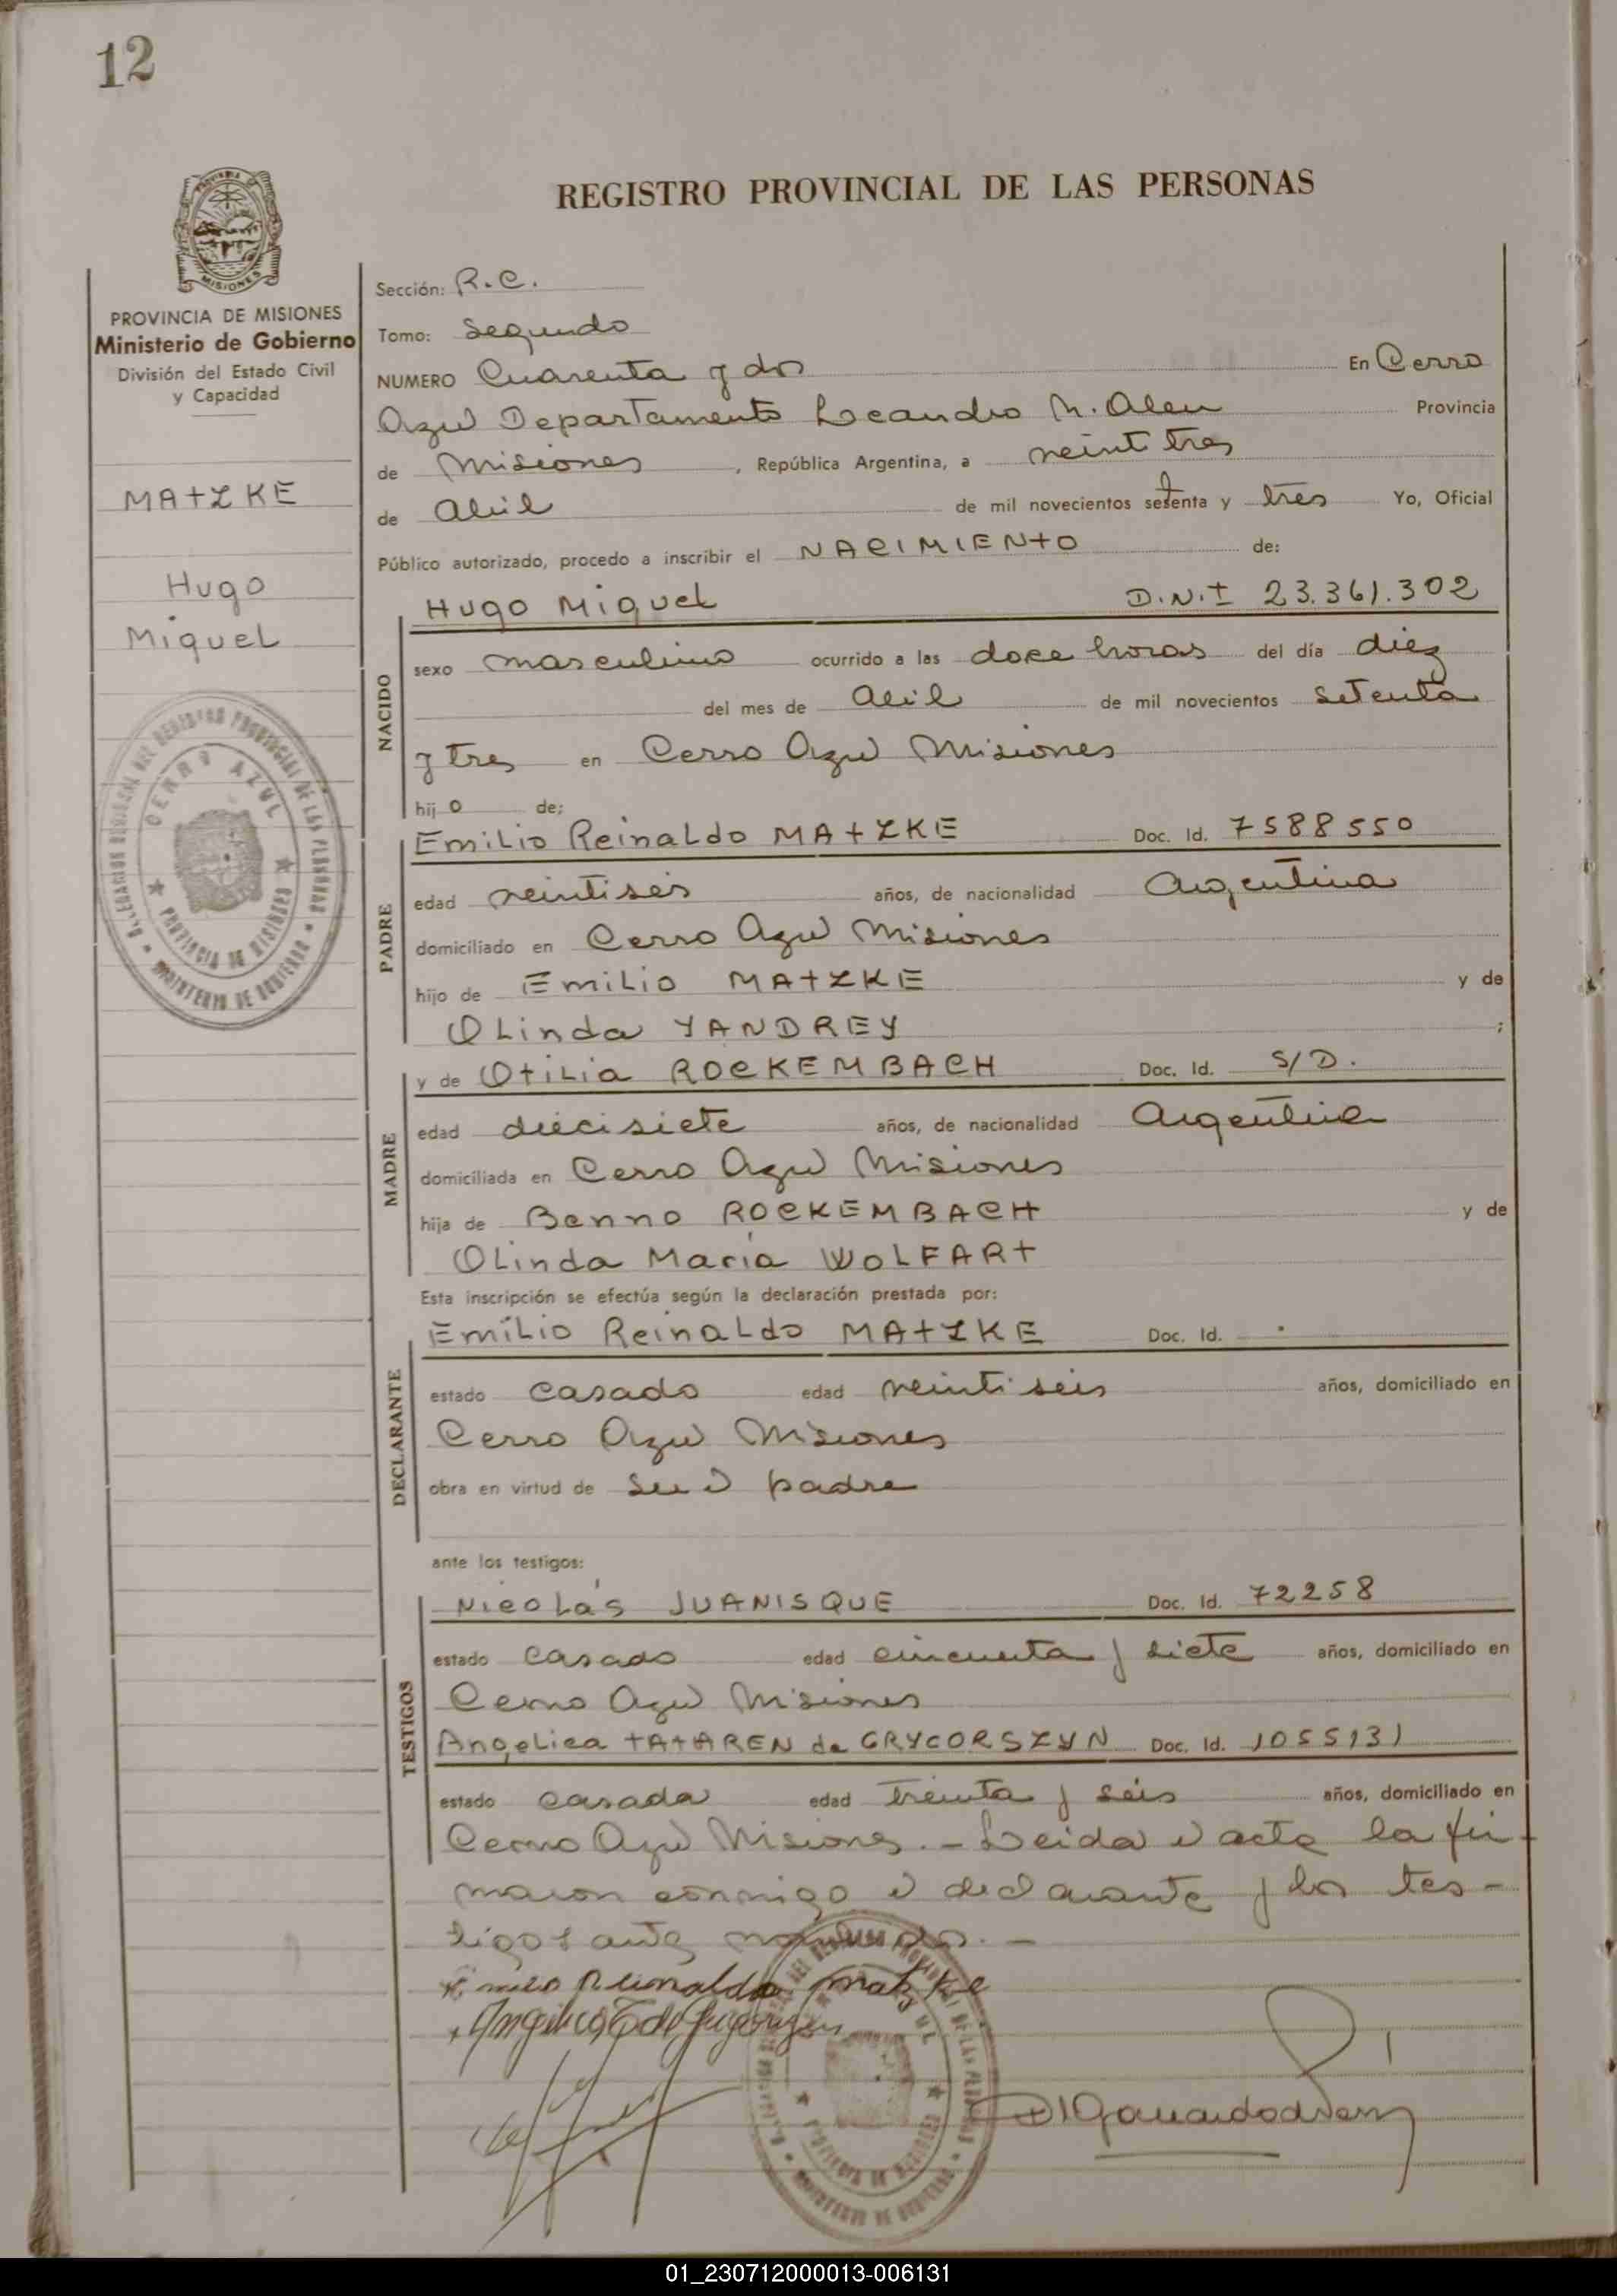 12
REGISTRO PROVINCIAL DE LAS PERSONAS
PROVINCIA DE MISIONES
Ministerio de Gobierno
División del Estado Civil
y Capacidad
MATZKE
Hugo
Miguel
CERRO AZUL
PROVINCIA DE MISIONES
MINISTERIO DE GOBIERNO
Sección: R.C.
Tomo: Segundo
NUMERO Cuarenta y dos En Cerro
Azul Departamento Leandro N. Alem Provincia
de Misiones, República Argentina, a veintitres
de Abril de mil novecientos setenta y tres Yo, Oficial
Público autorizado, procedo a inscribir el NACIMIENTO de:
Hugo Miguel D.N.I 23.361.302
NACIDO
sexo masculino ocurrido a las doce horas del día diez
del mes de Abril de mil novecientos setenta
y tres en Cerro Azul Misiones
hijo de;
Emilio Reinaldo MATZKE Doc. Id. 7588550
PADRE
edad veintiseis años, de nacionalidad Argentina
domiciliado en Cerro Azul Misiones
hijo de Emilio MATZKE y de
Olinda YANDREY ;
y de Otilia ROCKEMBACH Doc. Id. S/D.
MADRE
edad diecisiete años, de nacionalidad Argentina
domiciliada en Cerro Azul Misiones
hija de Benno ROCKEMBACH y de
Olinda María WOLFART
Esta inscripción se efectúa según la declaración prestada por:
Emilio Reinaldo MATZKE Doc. Id.
DECLARANTE
estado casado edad veintiseis años, domiciliado en
Cerro Azul Misiones
obra en virtud de ser el padre
ante los testigos:
Nicolás JUANISQUE Doc. Id. 72258
TESTIGOS
estado casado edad cincuenta y siete años, domiciliado en
Cerro Azul Misiones
Angelica TATAREN de GRYCORSZYN Doc. Id. 1055131
estado casada edad treinta y seis años, domiciliado en
Cerro Azul Misiones.- Leida el acta la fir-
maron conmigo el declarante y los tes-
tigos ante
Emilio Reinaldo Matzke
01_230712000013-006131